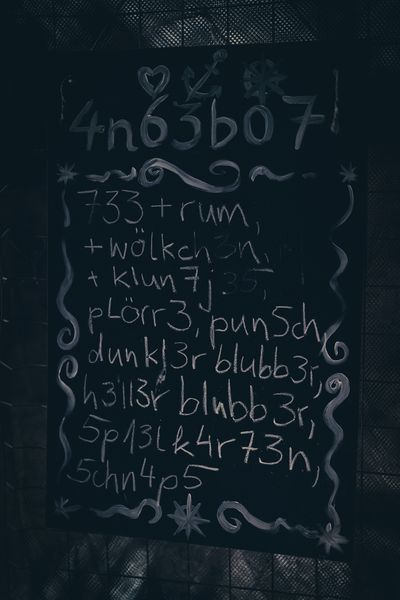 4n63b07
733 + rum,
+ wölkch3n,
+ klun7j35,
pLörr3, pun5ch,
dunkl3r blubb3r,
h3ll3r blubb3r,
5p13lk4r73n,
5chn4p5